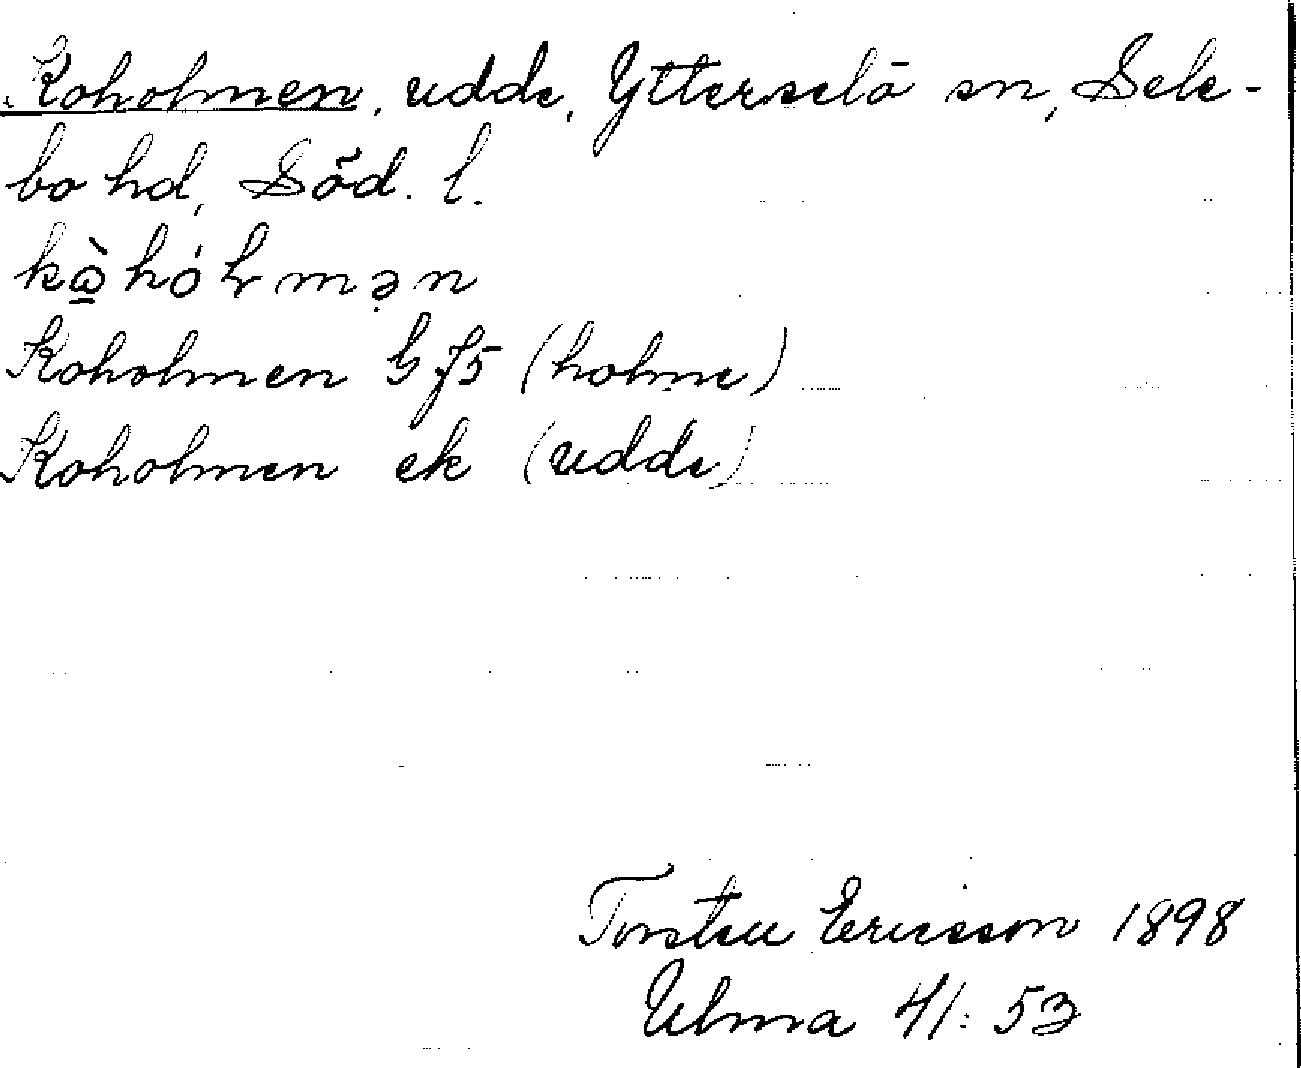 Koholmen, udde, Ytterselö sn, Sele-
bo hd, Söd. l.
Koholmen G f5 (holme)
Koholmen ek (udde)
Torsten Ericsson 1898
Ulma 41:53